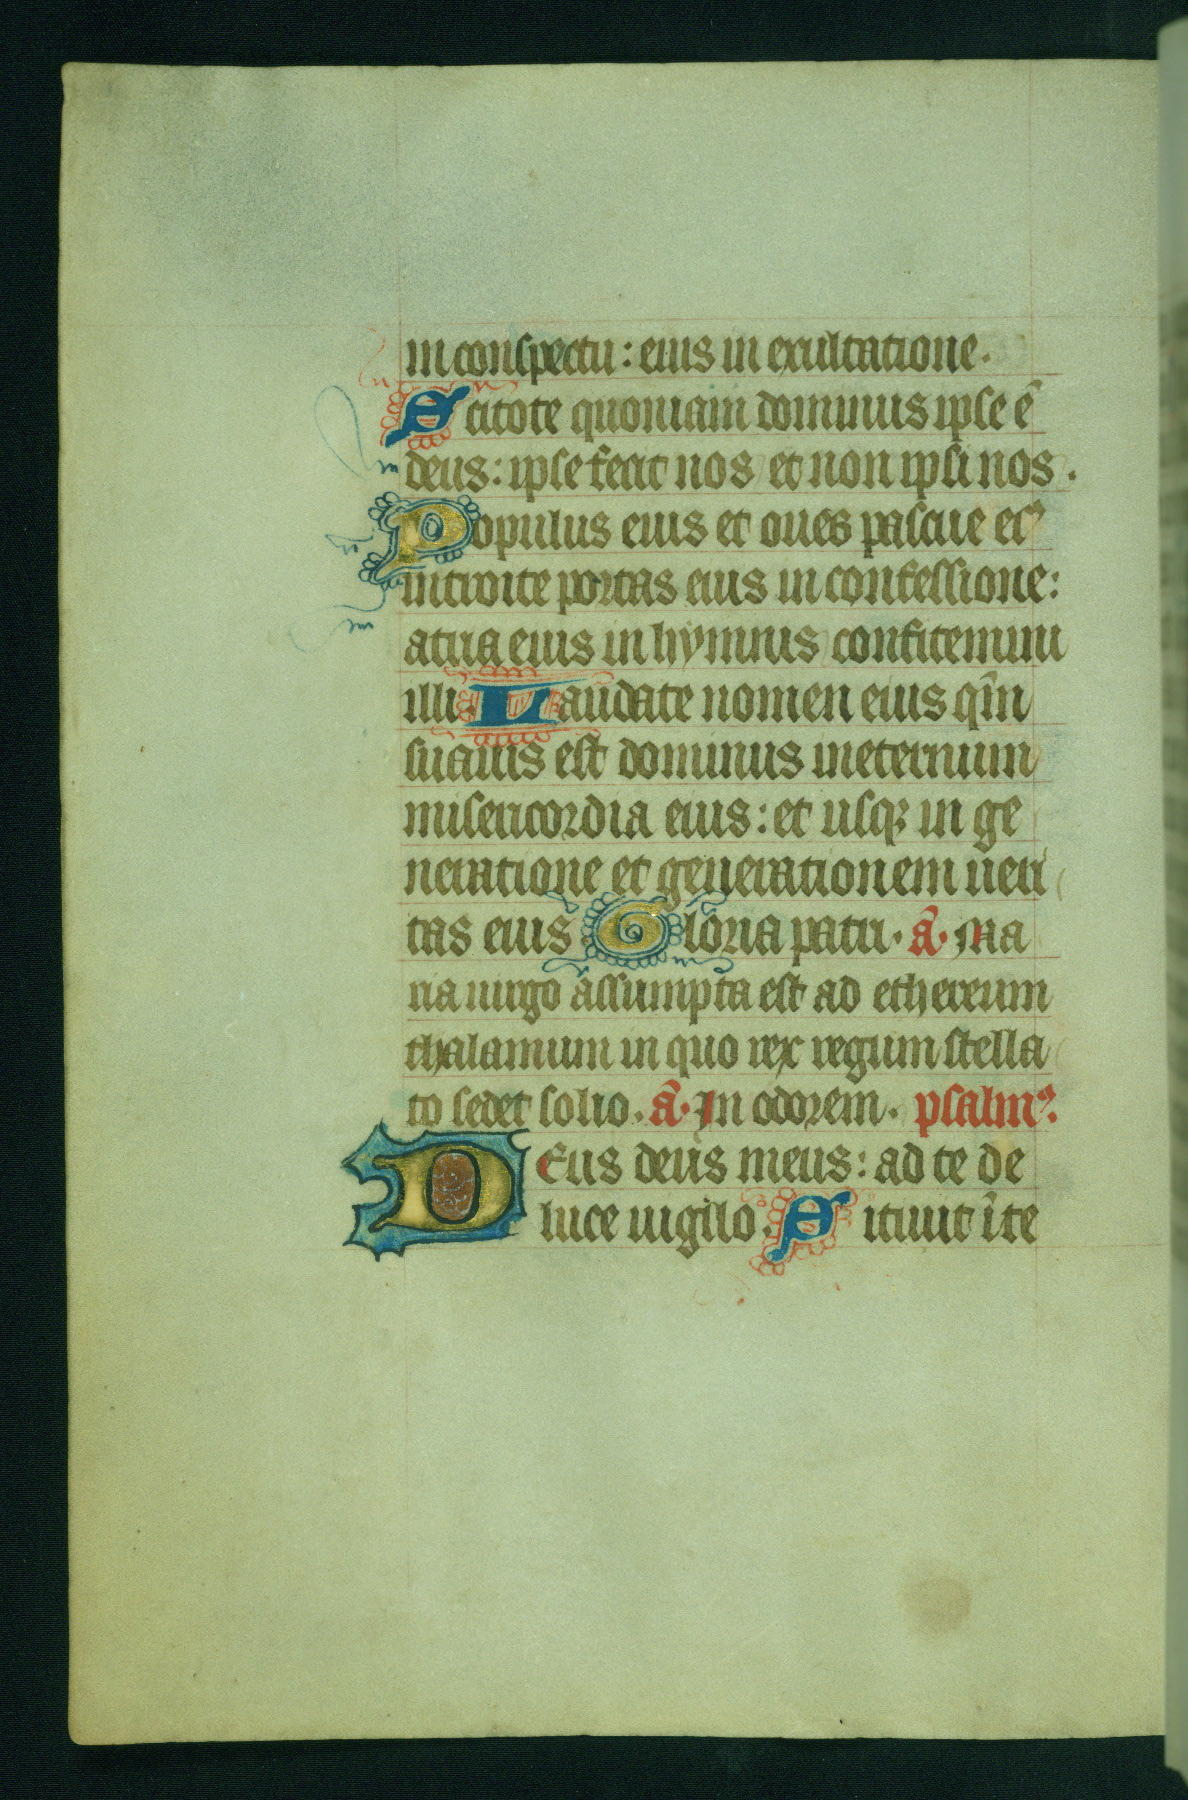 in conspectu: eius in exultatione.
Scitote quoniam dominus ipse ē
deus: ipse fecit nos et non ipsi nos.
Populus eius et oues pascue ei⁹
introite portas eius in confessione:
atria eius in hymnis confitemini
illi. Laudate nomen eius qm̄
suauis est dominus ineternum
misericordia eius: et usqꝫ in ge
neratione et generationem ueri
tas eius Gloria patri. ā. Ma
ria uirgo assumpta est ad ethereum
thalamum in quo rex regum stella
to sedet solio. ā. In odorem. psalm⁹.
DEus deus meus: ad te de
luce uigilo. Sitiuit ī te